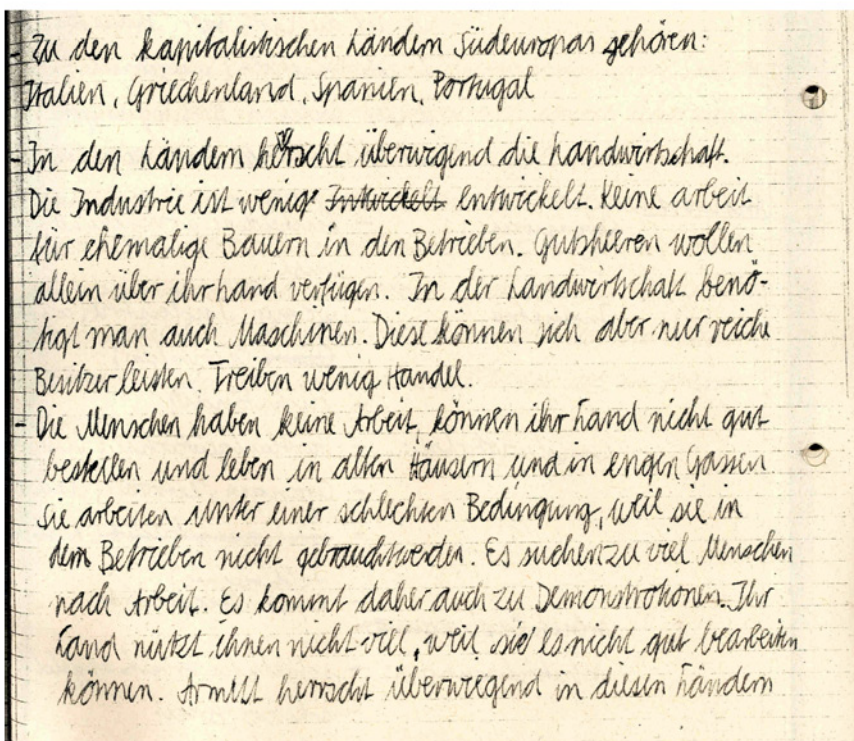 - Zu den kapitalistischen Ländern Südeuropas gehören:
Italien, Griechenland, Spanien, Portugal
- In den Ländern herrscht überwigend die Landwirtschaft.
Die Industrie ist wenig Entwickelt entwickelt. Keine arbeit
für ehemalige Bauern in den Betrieben. Gutsheeren wollen
allein über ihr Land verfügen. In der Landwirtschaft benö-
tigt man auch Maschinen. Diese können sich aber nur reiche
Besitzer leisten. Treiben wenig Handel.
- Die Menschen haben keine Arbeit, können ihr Land nicht gut
bestellen und leben in alten Häusern und in engen Gassen
Sie arbeiten unter einer schlechten Bedingung, weil sie in
dem Betrieben nicht gebraucht werden. Es suchen zu viel Menschen
nach Arbeit. Es kommt daher auch zu Demonstrationen. Ihr
Land nützt ihnen nicht viel, weil sie es nicht gut bearbeiten
können. Armut herrscht überwiegend in diesen Ländern